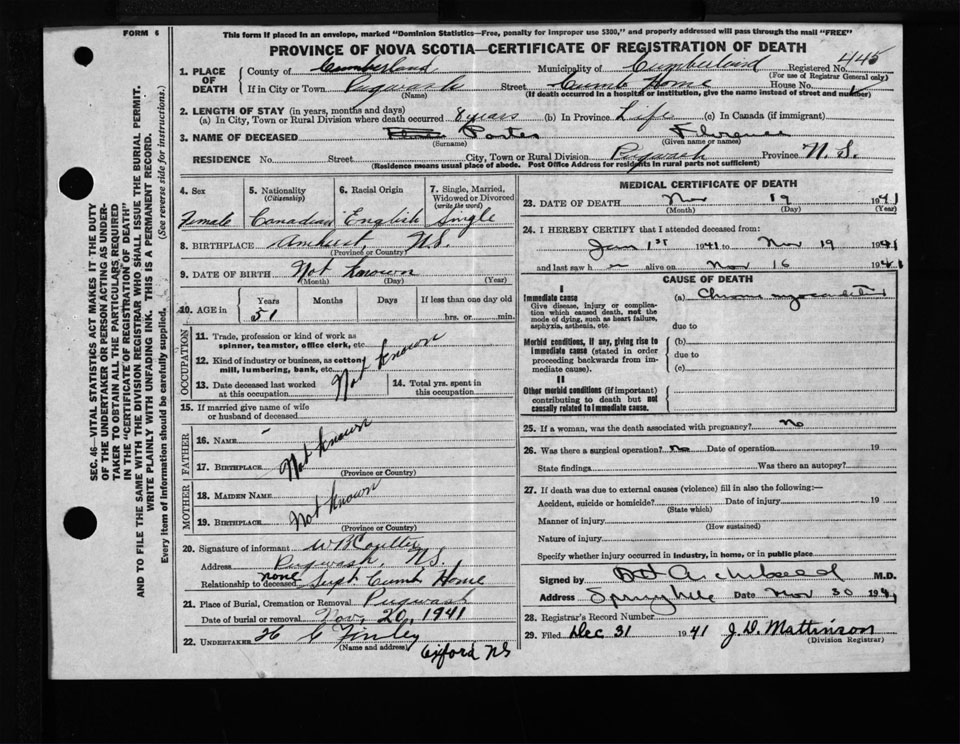 FORM 6
This form if placed in an envelope, marked "Dominion Statistics—Free, penalty for improper use $300," and properly addressed will pass through the mail "FREE"
PROVINCE OF NOVA SCOTIA—CERTIFICATE OF REGISTRATION OF DEATH
1. PLACE OF DEATH County of Cumberland Municipality of Cumberland Registered No. 445
(For use of Registrar General only)
If in City or Town Pugwash Street Cumb Home House No.
(Name) (If death occurred in a hospital or institution, give the name instead of street and number)
2. LENGTH OF STAY (in years, months and days)
(a) In City, Town or Rural Division where death occurred 8 years (b) In Province Life (c) In Canada (if immigrant)
3. NAME OF DECEASED Porter Florence
(Surname) (Given name or names)
RESIDENCE No. Street City, Town or Rural Division Pugwash Province N.S.
(Residence means usual place of abode. Post Office Address for residents in rural parts not sufficient)
4. Sex 5. Nationality (Citizenship) 6. Racial Origin 7. Single, Married, Widowed or Divorced (write the word)
Female Canadian English Single
8. BIRTHPLACE Amherst, NS.
(Province or Country)
9. DATE OF BIRTH Not known
(Month) (Day) (Year)
10. AGE in Years Months Days If less than one day old
51 hrs. or min.
OCCUPATION
11. Trade, profession or kind of work as spinner, teamster, office clerk, etc.
12. Kind of industry or business, as cotton mill, lumbering, bank, etc. Not known
13. Date deceased last worked at this occupation 14. Total yrs. spent in this occupation
15. If married give name of wife or husband of deceased
FATHER
16. Name
17. Birthplace Not known
(Province or Country)
MOTHER
18. Maiden Name
19. Birthplace Not known
(Province or Country)
20. Signature of informant
Address Pugwash, N.S.
Relationship to deceased none Supt. Cumb Home
21. Place of Burial, Cremation or Removal Pugwash
Date of burial or removal Nov, 20, 1941
22. Undertaker Finley
(Name and address) NS
MEDICAL CERTIFICATE OF DEATH
23. DATE OF DEATH Nov 19 1941
(Month) (Day) (Year)
24. I HEREBY CERTIFY that I attended deceased from:
Jan 1st 1941 to Nov 19 1941
and last saw her alive on Nov 16 1941
CAUSE OF DEATH
I
Immediate cause (a) Chronic myocarditis
Give disease, injury or complication which caused death, not the mode of dying, such as heart failure, asphyxia, asthenia, etc.
due to
Morbid conditions, if any, giving rise to immediate cause (stated in order proceeding backwards from immediate cause).
(b)
due to
(c)
II
Other morbid conditions (if important) contributing to death but not causally related to immediate cause.
25. If a woman, was the death associated with pregnancy? No
26. Was there a surgical operation? No Date of operation 19
State findings Was there an autopsy?
27. If death was due to external causes (violence) fill in also the following:—
Accident, suicide or homicide? Date of injury 19
(State which)
Manner of injury
(How sustained)
Nature of injury
Specify whether injury occurred in industry, in home, or in public place
Signed by Archibald M.D.
Address Springhill Date Nov 30 1941
28. Registrar's Record Number
29. Filed Dec 31 1941 J. D. Mattinson
(Division Registrar)
SEC. 46—VITAL STATISTICS ACT MAKES IT THE DUTY
OF THE UNDERTAKER OR PERSON ACTING AS UNDER-
TAKER TO OBTAIN ALL THE PARTICULARS REQUIRED
IN THE "CERTIFICATE OF REGISTRATION OF DEATH"
AND TO FILE THE SAME WITH THE DIVISION REGISTRAR WHO SHALL ISSUE THE BURIAL PERMIT.
WRITE PLAINLY WITH UNFADING INK. THIS IS A PERMANENT RECORD.
Every item of information should be carefully supplied. (See reverse side for instructions.)